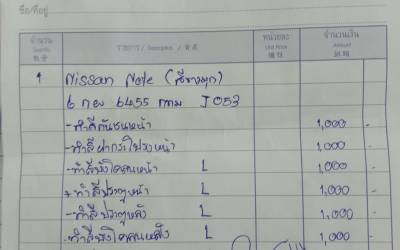 ชื่อ/ที่อยู่
จำนวน Quantity 數量 รายการ / Description / 貨名 หน่วยละ Unit Price 價值 จำนวนเงิน Amount 銀碼
1 Nissan Note (สีขาวมุก)
6 กย 6455 กทม J053
- ทำสีกันชนหน้า 1,000 -
- ทำสีฝากระโปรงหน้า 1,000 -
- ทำสีบังโคลนหน้า L 1,000 -
+ ทำสีประตูหน้า L 1,000 -
- ทำสีประตูหลัง L 1,000 -
- ทำสีบังโคลนหลัง L 1,000 -